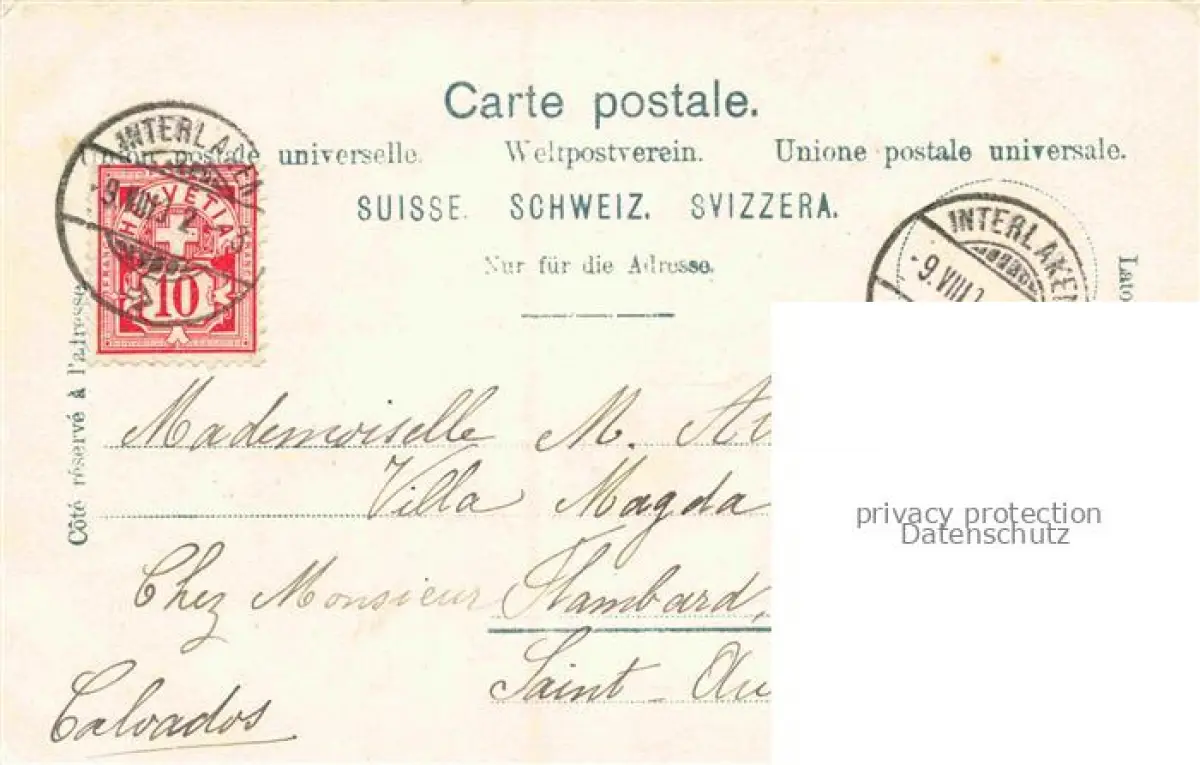 Carte postale.
Union postale universelle. Weltpostverein. Unione postale universale.
SUISSE. SCHWEIZ. SVIZZERA.
Nur für die Adresse.
INTERLAKEN
HELVETIA
10
INTERLAKEN
-9.VIII
Côté réservé à l'adresse.
Lato
Mademoiselle M.
Villa Magda
Chez Monsieur Flambard,
Saint-Au
Calvados
privacy protection
Datenschutz